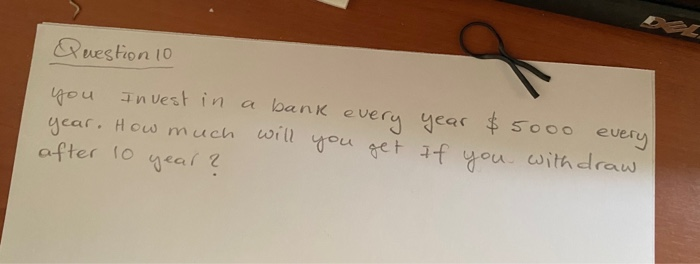 Question 10
you Invest in a bank every year $ 5000 every
year. How much will you get If you withdraw
after 10 year?
DELL